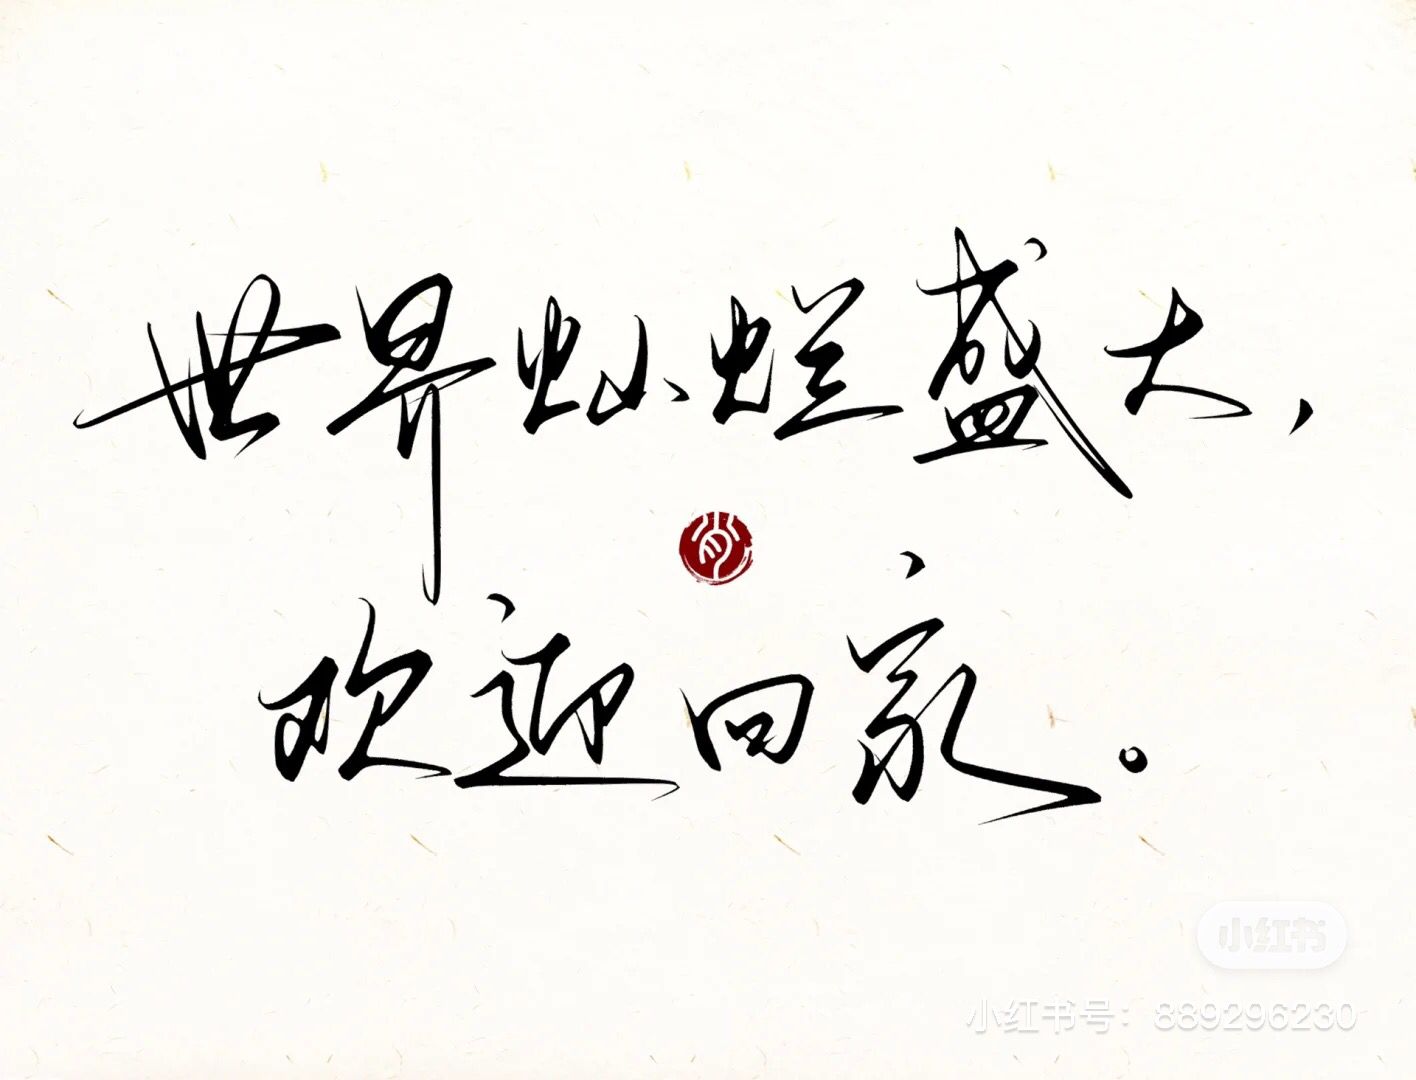 世界灿烂盛大，
欢迎回家。
小红书
小红书号：889296230